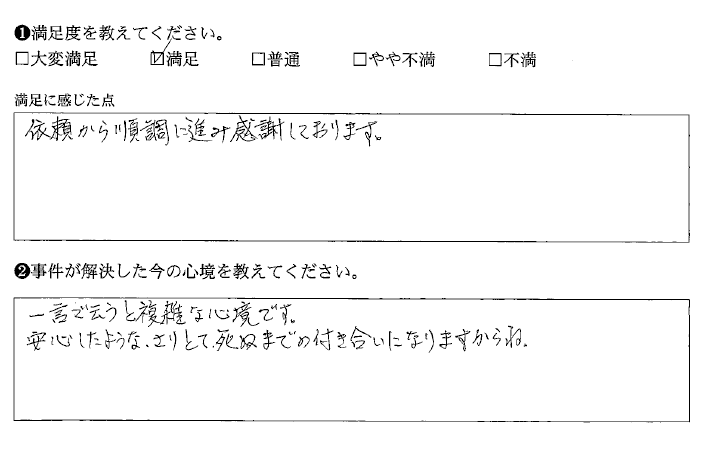 ❶満足度を教えてください。
□大変満足 ☑満足 □普通 □やや不満 □不満
満足に感じた点
依頼から順調に進み感謝しております。
❷事件が解決した今の心境を教えてください。
一言で云うと複雑な心境です。
安心したような、さりとて、死ぬまでの付き合いになりますからね。